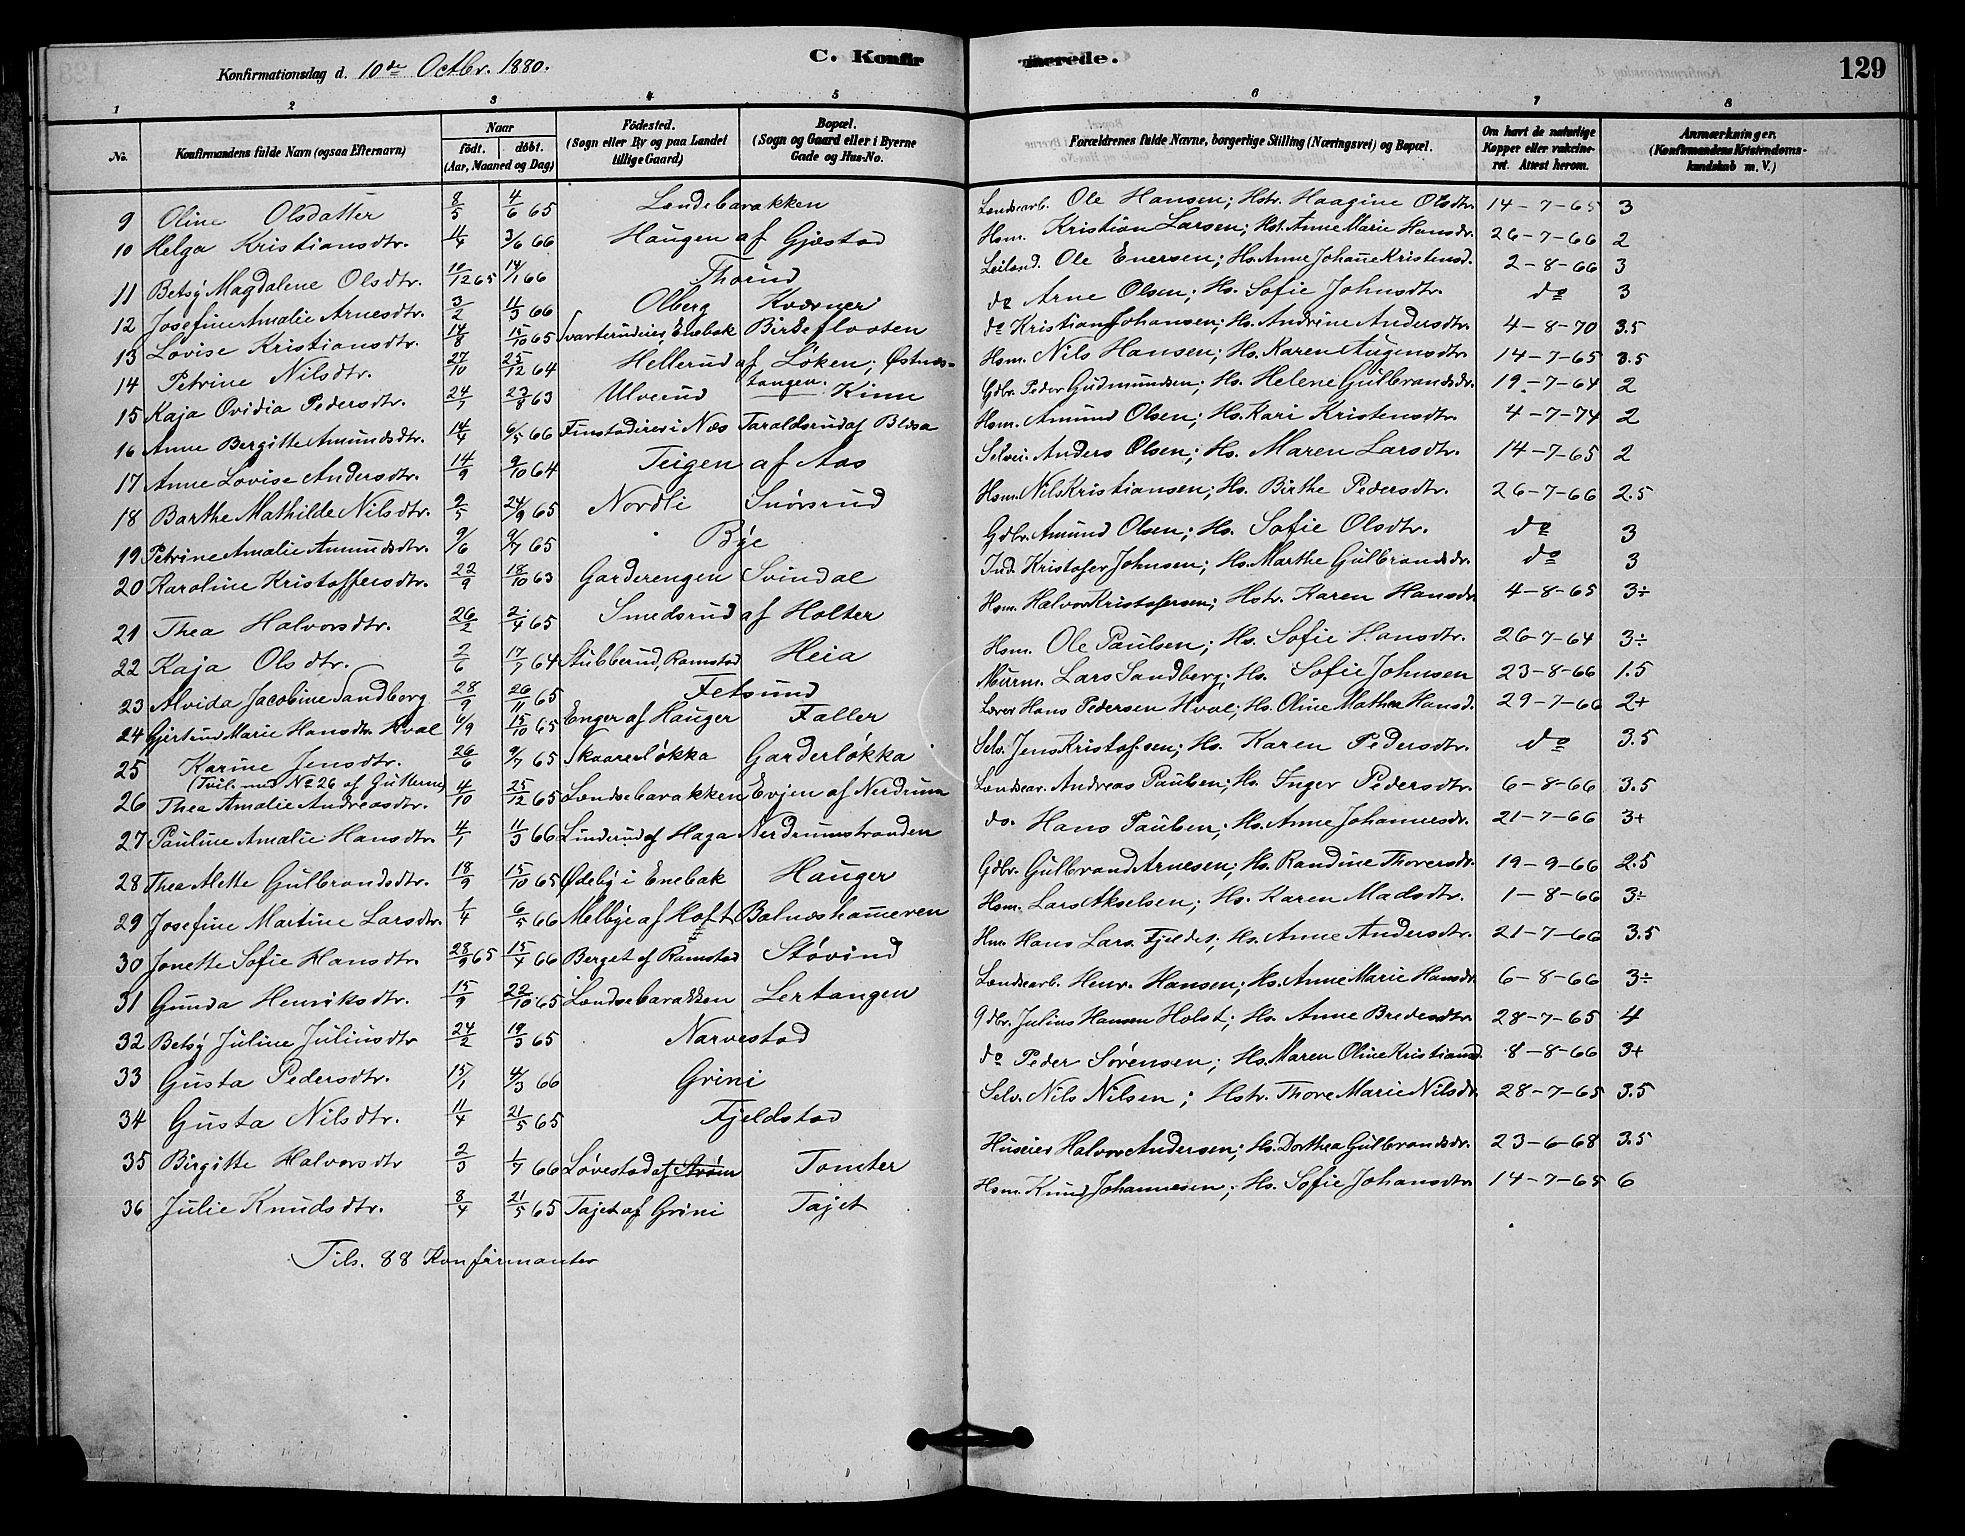 Konfirmationsdag d. 10de Octbr. 1880.
C. Konfirmerede.
129
1 2 3 4 5 6 7 8
No.
Konfirmandens fulde Navn (ogsaa Efternavn)
Naar
født. døbt.
(Aar, Maaned og Dag)
Födested.
(Sogn eller By og paa Landet
tillige Gaard)
Bopæl.
(Sogn og Gaard eller i Byerne
Gade og Hus-No.
Forældrenes fulde Navne, borgerlige Stilling (Næringsvei) og Bopæl.
Om havt de naturlige
Kopper eller vakcine-
ret. Attest herom.
Anmærkninger.
(Konfirmandens Kristendoms-
kundskab m. V.)
9 Oline Olsdatter 8/5 4/6 65 Lendebarakken Lendsearb. Ole Hansen; Hstr. Haagine Olsdtr. 14-7-65 3
10 Helga Kristiansdtr. 11/4 3/6 66 Haugen af Gjæstad Hsm. Kristian Larsen; Hst. Anne Marie Hansdr. 26-7-66 2
11 Betsÿ Magdalene Olsdtr. 10/12 65 14/1 66 Thorud Leiland. Ole Enersen; Hs. Anne Johane Kristensd. 2-8-66 3
12 Josefine Amalie Arnesdtr. 3/2 11/3 66 Olberg Kværner do Arne Olsen; Hs. Sofie Johnsdtr. do 3
13 Lovise Kristiansdtr. 14/8 15/10 65 Svarterudeie, Enebak Birteflooten do Kristian Johansen; Hs. Andrine Andersdtr. 4-8-70 3.5
14 Petrine Nilsdtr. 27/10 25/12 64 Hellerud af Løken; Østnæs-
tangen. Hsm. Nils Hansen; Hs. Karen Augensdtr. 14-7-65 3.5
15 Kaja Ovidia Pedersdtr. 24/7 23/8 63 Ulverud Kinn Gdbr. Peder Gudmundsen; Hs. Helene Gulbrandsdr. 19-7-64 2
16 Anne Bergitte Amundsdtr. 14/4 6/5 66 Finstadeie i Næs Taraldsrud af Blæsa Hsm. Amund Olsen; Hs. Kari Kristensdtr. 4-7-74 2
17 Anne Lovise Andersdtr. 14/9 9/10 64 Teigen af Aas Selvei. Anders Olsen; Hs. Maren Larsdtr. 14-7-65 2
18 Barthe Mathilde Nilsdtr. 2/5 24/9 65 Nordli Snörsrud Hsm. Nils Kristiansen; Hs. Birthe Pedersdtr. 26-7-66 2.5
19 Petrine Amalie Amundsdtr. 9/6 9/7 65 Bÿe Gdbr. Amund Olsen; Hs. Sofie Olsdtr. do 3
20 Karoline Kristoffersdtr. 22/9 18/10 63 Garderengen Svindal Ind. Kristofer Johnsen; Hs. Marthe Gulbrandsdr. do 3
21 Thea Halvorsdtr. 26/2 2/4 65 Smedsrud af Holter Hsm. Halvor Kristofersen; Hstr. Karen Hansdr. 4-8-65 3÷
22 Kaja Olsdtr. 2/6 17/7 64 Stubberud, Ramstad Heia Hsm. Ole Paulsen; Hs. Sofie Hansdtr. 26-7-64 3÷
23 Alvida Jacobine Sandberg 28/9 26/11 65 Fetsund Murm. Lars Sandberg; Hs. Sofie Johnsen 23-8-66 1.5
24 Gjertrud Marie Hansdtr. Hval 6/9 15/10 65 Enger af Hauger Faller Lærer Hans Pedersen Hval; Hs. Oline Mathea Hansd. 29-7-66 2+
25 Karine Jensdtr. 26/6 9/7 65 Skaarerløkka Garderløkka Selv. Jens Kristofsen; Hs. Karen Pedersdtr. do 3.5
(Tvil. med No 26 af Gutterne)
26 Thea Amalie Andreasdtr. 4/10 25/12 65 Lendsebarakken Evjen af Nerdrum Lendsear. Andreas Paulsen; Hs. Inger Pedersdtr. 6-8-66 3.5
27 Pauline Amalie Hansdtr. 4/1 11/3 66 Linderud af Haga Nerdrumstranden do. Hans Paulsen; Hs. Anne Johannesdr. 21-7-66 3+
28 Thea Mette Gulbrandsdtr. 18/9 15/10 65 Ødebÿ i Enebak Hauger Gdbr. Gulbrand Arnesen; Hs. Randine Thoresdr. 19-9-66 2.5
29 Josefine Martine Larsdtr. 1/4 6/5 66 Melbye af Hoft Bolnæshameren Hsm. Lars Akselsen; Hs. Karen Madsdtr. 1-8-66 3÷
30 Jonette Sofie Hansdtr. 28/9 65 15/4 66 Berget af Ramstad Støvind Hm. Hans Lars. Fjeldet; Hs. Anne Andersdtr. 21-7-66 3.5
31 Gunda Henriksdtr. 15/9 22/10 65 Lendsebarakken Lertangen Lendsearb. Henr. Hansen; Hs. Anne Marie Hansdr. 6-8-66 3÷
32 Betsÿ Juline Juliusdtr 24/2 19/3 65 Narvestad Gdbr. Julius Hansen Holst; Hs. Anne Bredesdtr. 28-7-65 4
33 Gusta Pedersdtr. 15/1 4/3 66 Grini do Peder Sörensen; Hs. Maren Oline Kristiansd. 8-8-66 3+
34 Gusta Nilsdtr. 11/4 21/5 65 Fjeldstad Selv. Nils Nilsen; Hstr. Thore Marie Nilsdr. 28-7-65 3.5
35 Birgitte Halvorsdtr 2/3 1/7 66 Løvestad af Strøm Tomter Huseier Halvor Andersen; Hs. Dorthea Gulbrandsdr. 23-6-68 3.5
36 Julie Knudsdtr. 8/4 21/5 65 Tajet af Grini Tajet Hsm. Knud Johannesen; Hs. Sofie Johansdtr. 14-7-65 6
Tils. 88 Konfirmanter